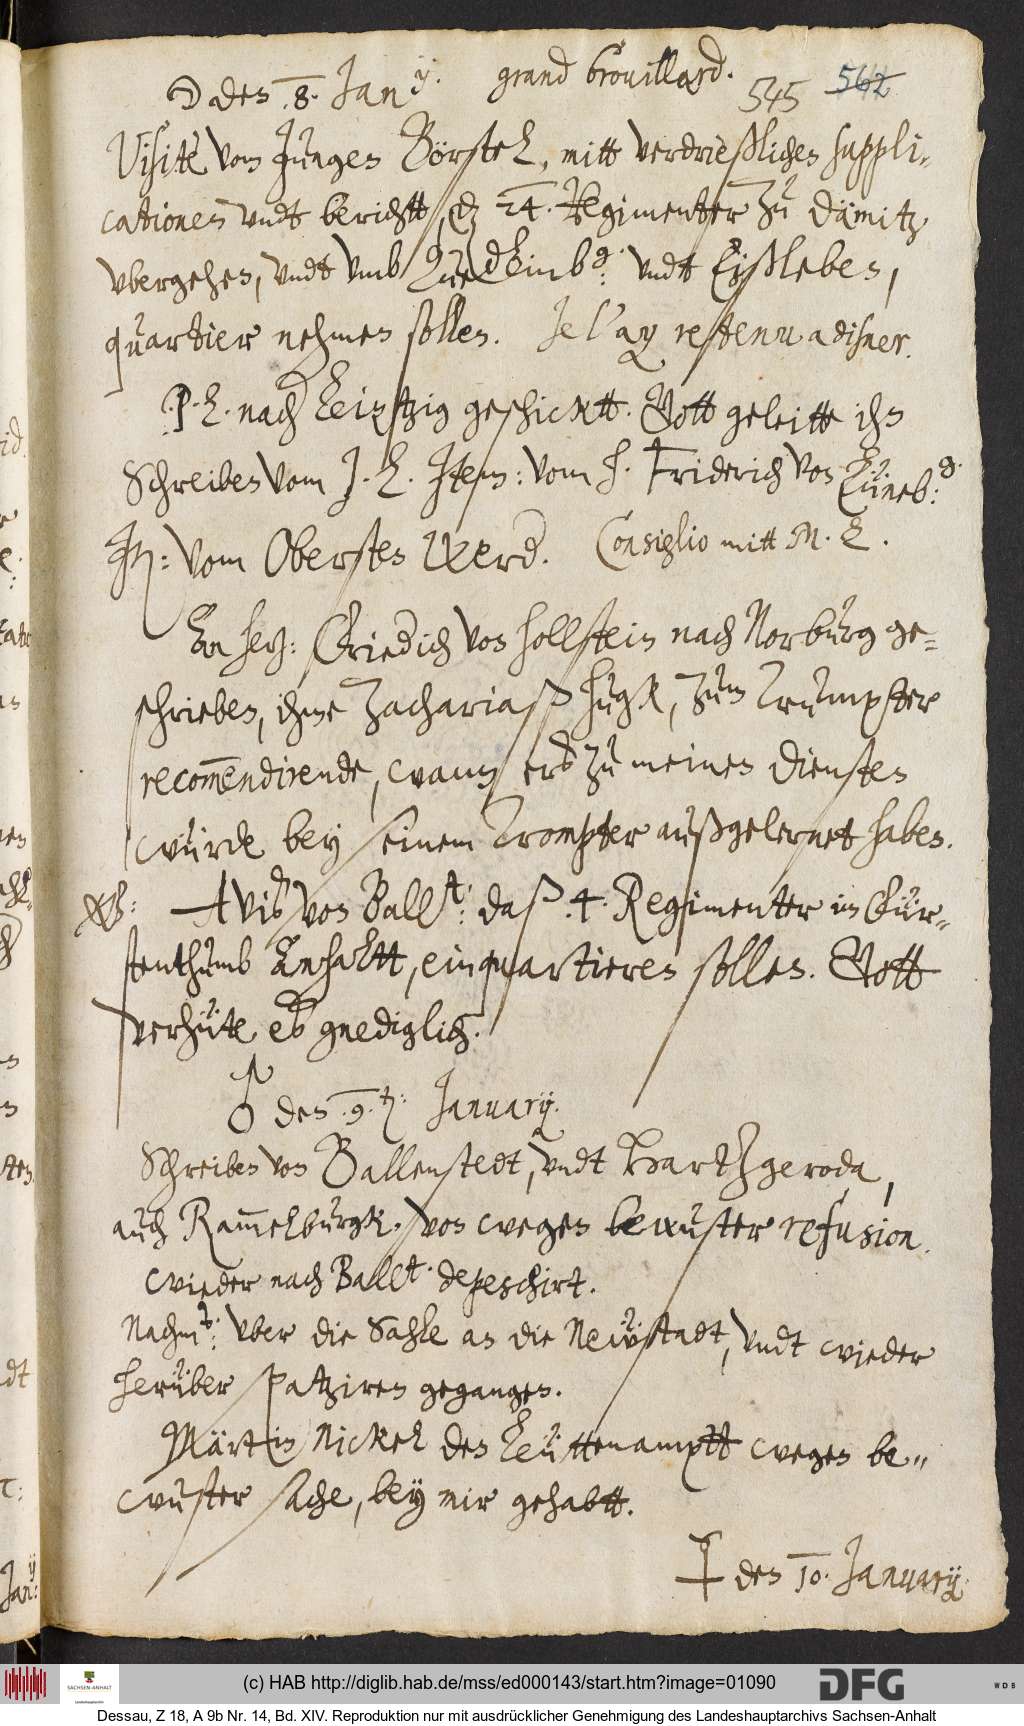 ☽ den .8. Jan.ÿ grand brouillard. 545 562
Visite vom Jungen Börstel, mitt verdrießlichen suppli-
cationen vndt berichtt, dz 24. Regimenter zu Dämitz
vbergehen, vndt vmb Quedlinb.g: vndt Eyßleben,
quartier nehmen sollen. Je l'ay restenu a disner.
P. L. nach Leiptzig geschicktt. Gott geleitte ihn
Schreiben vom J. L. Item: vom H. Friderich von Lüneb:g.
It: vom Obersten Werd. Consiglio mitt M. L.
An herz: Friedich von Hollstein nach Norburg ge-
schrieben, ihme Zachariaß Hugk, zum Trumpfter
recommendirende, wann er zu meinen diensten
würde bey seinem Trompter außgelernet haben.
NB: Avis von Ball.t: daß .4. Regimenter im Für-
stenthumb Anhaltt, einquartieren sollen. Gott
verhüte es gnediglich.
♂ den .9.t: January.
Schreiben von Ballenstedt, vndt Hartzgeroda,
auch Rammelburgk. von wegen bewuster refusion.
wieder nach Ball.t. depeschirt.
Nachm: vber die Sahle an die Neüstadt, vndt wieder
herüber spatziren gegangen.
Märtin Nickel den Leüttenamptt wegen be-
wuster sache, bey mir gehabtt.
☿ den 10. January
(c) HAB http://diglib.hab.de/mss/ed000143/start.htm?image=01090
SACHSEN-ANHALT
DFG
WDB
Dessau, Z 18, A 9b Nr. 14, Bd. XIV. Reproduktion nur mit ausdrücklicher Genehmigung des Landeshauptarchivs Sachsen-Anhalt